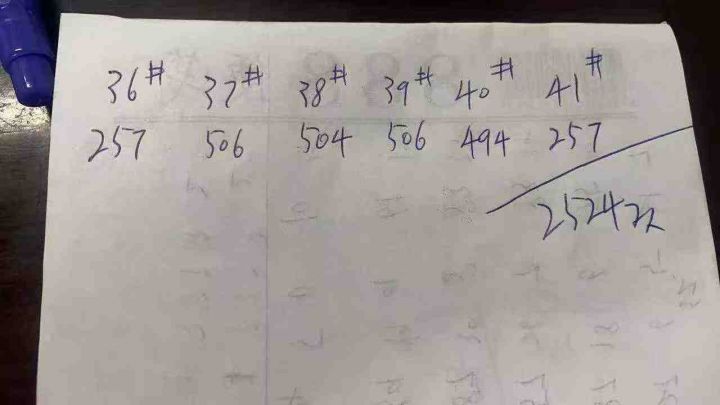 36# 37# 38# 39# 40# 41#
257 506 504 506 494 257
2524双